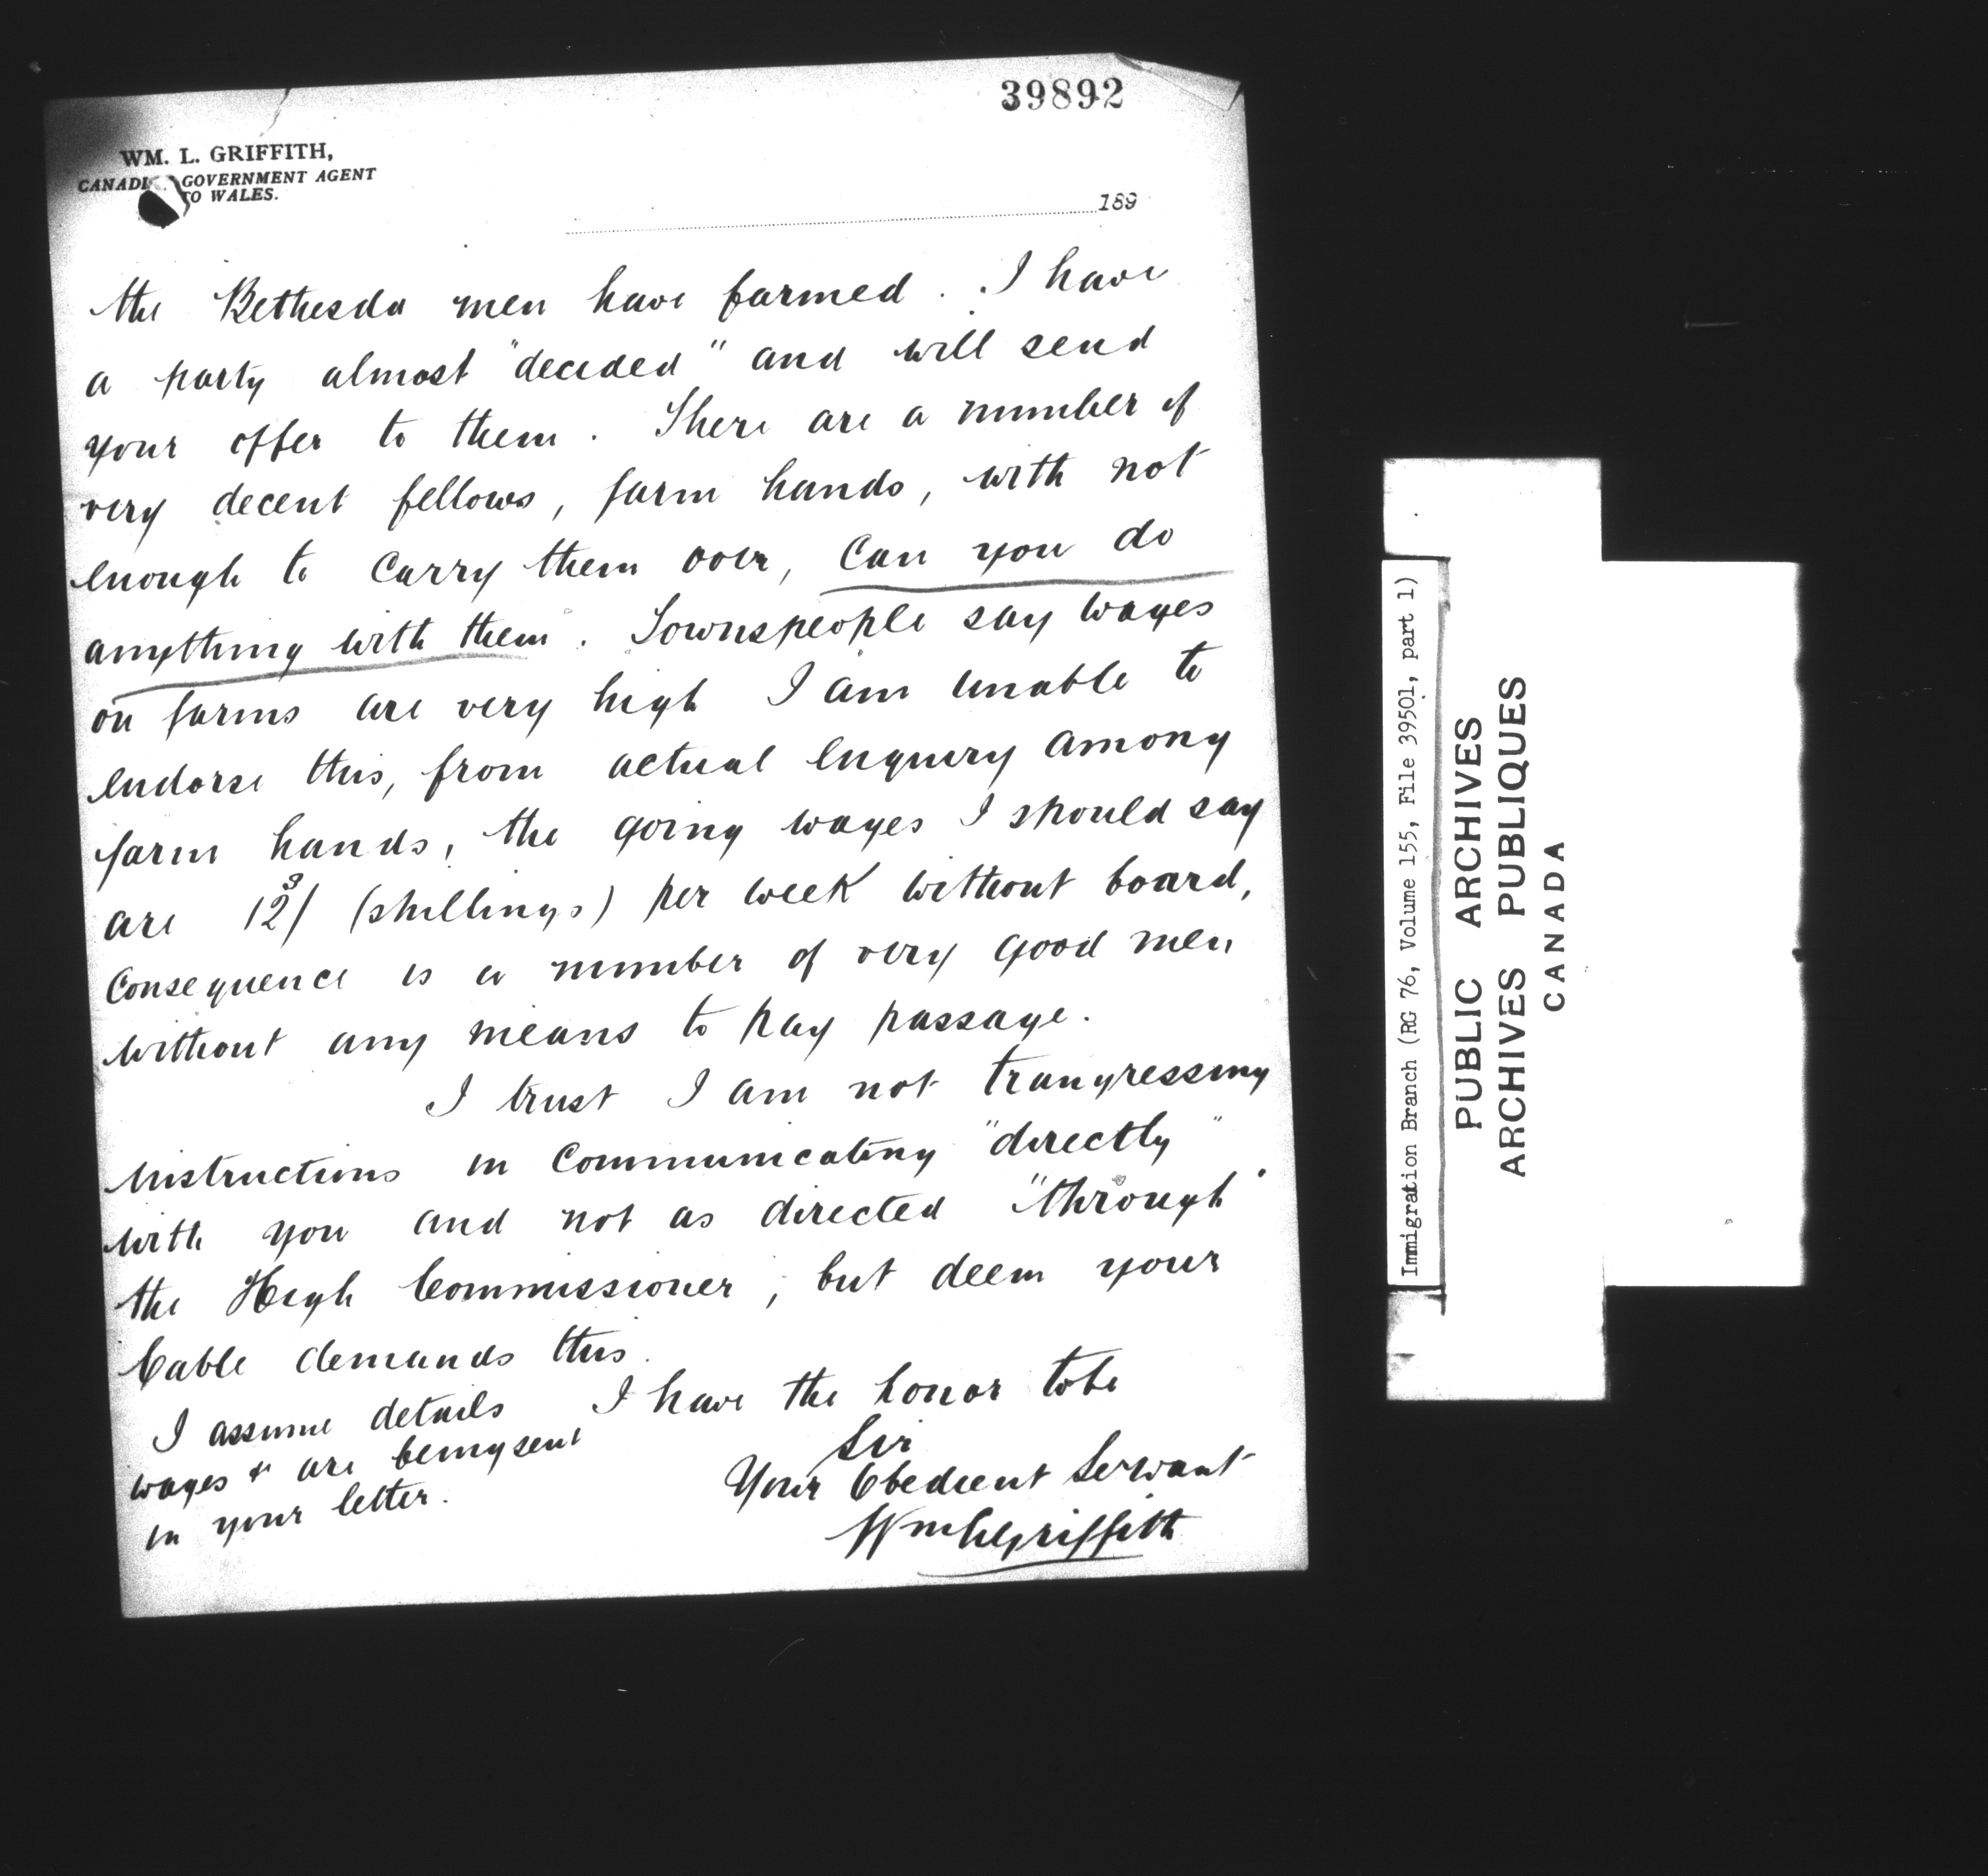 39892
WM. L. GRIFFITH,
CANADI GOVERNMENT AGENT
TO WALES.
189
the Bethesda men have farmed. I have
a party almost "decided" and will send
your offer to them. There are a number of
very decent fellows, farm hands, with not
enough to carry them over, Can you do
anything with them. Townspeople say wages
on farms are very high I am unable to
endorse this, from actual enquiry among
farm hands, the going wages I should say
are 12/3 (shillings) per week without board,
Consequence is a number of very good men
without any means to pay passage.
I trust I am not trangressing
instructions in Communicating "directly"
with you and not as directed "through"
the High Commissioner; but deem your
Cable demands this.
I have the honor to be
Sir
Your Obedient Servant
Wm L Griffith
I assume details
wages & are being sent
in your letter.
Immigration Branch (RG 76, Volume 155, File 39501, part 1)
PUBLIC ARCHIVES
ARCHIVES PUBLIQUES
CANADA